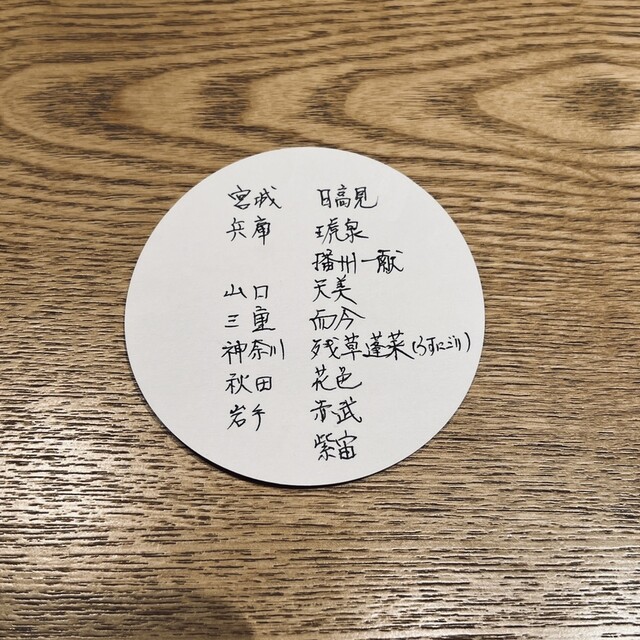 宮城 日高見
兵庫 琥泉
播州一献
山口 天美
三重 而今
神奈川 残草蓬莱(うすにごり)
秋田 花邑
岩手 赤武
紫宙